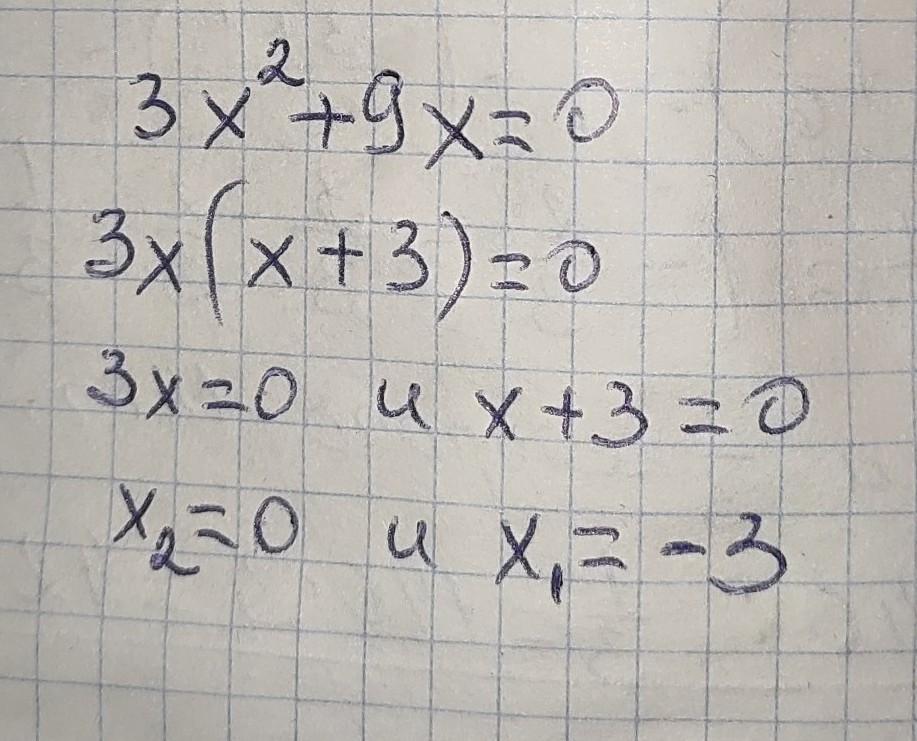 3x²+9x=0
3x(x+3)=0
3x=0 и x+3=0
x₂=0 и x₁=-3